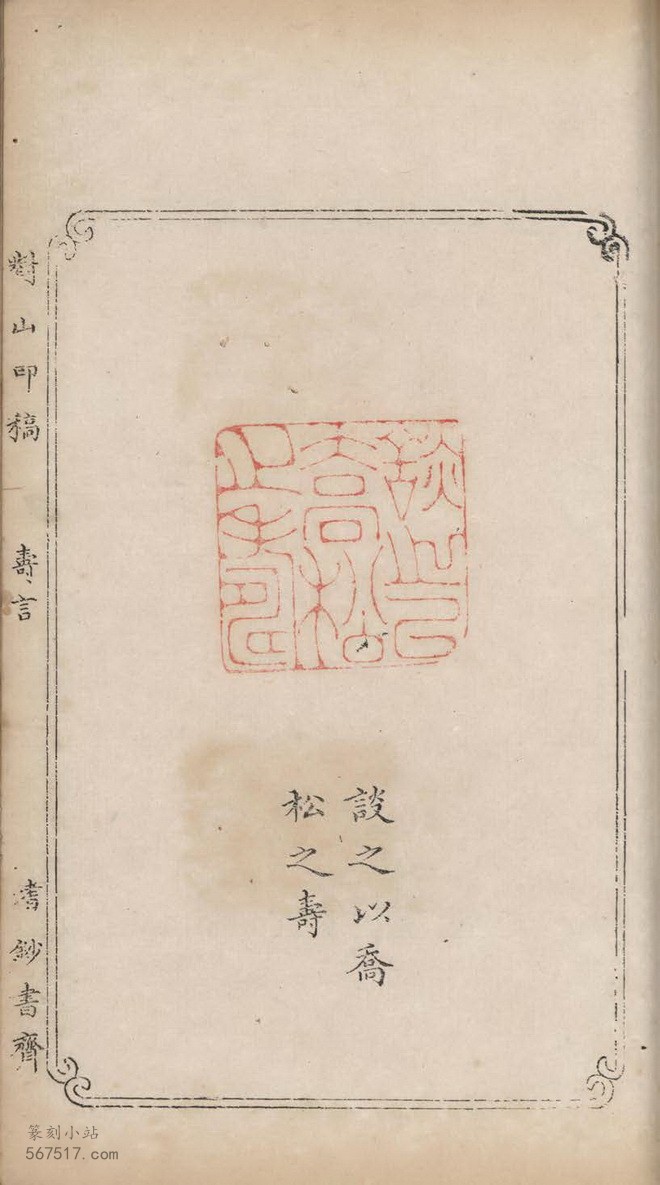 談之以喬
松之壽
對山印稿
壽言
嗜鈔書齋
篆刻小站
567517.com